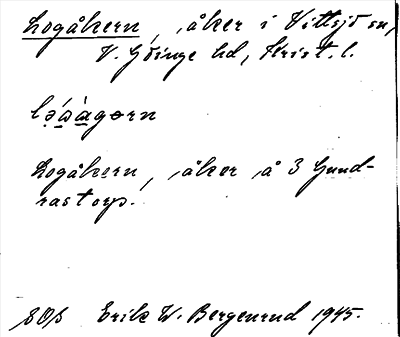 Logåkern, åker i Vittsjö sn,
V. Göinge hd, Krist. l.
Logåkern, åker å 3 Gund-
rastorp.
Erik W. Bergenrud 1945.